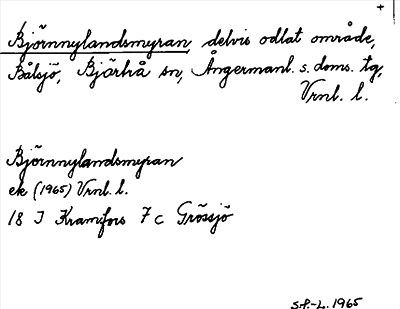 +
Björnnylandsmyran delvis odlat område,
Bålsjö, Bjärtrå sn, Ångermanl. s. doms. tg,
Vrnl. l.
Björnnylandsmyran
ek (1965) Vrnl. l.
18 I Kramfors 7 c Grössjö
S.P.-L. 1965